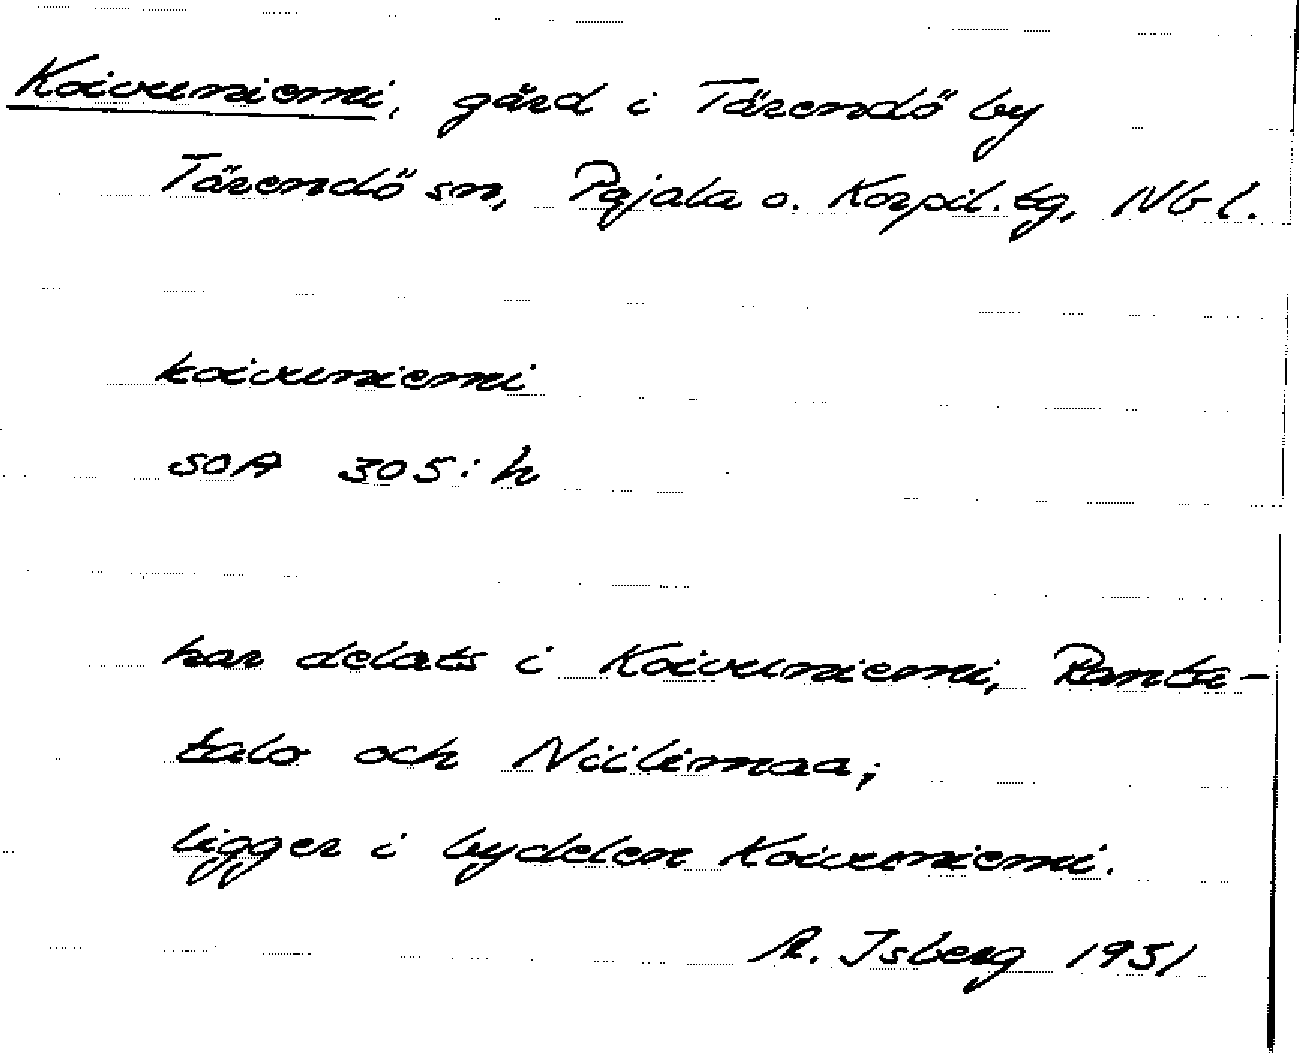 Koivuniemi, gård i Tärendö by
Tärendö sn, Pajala o. Korpil. tg, Nb l.
koivuniemi
SOA 305:h
har delats i Koivuniemi, Ranta-
talo och Niilimaa;
ligger i bydelen Koivuniemi.
A. Isberg 1931